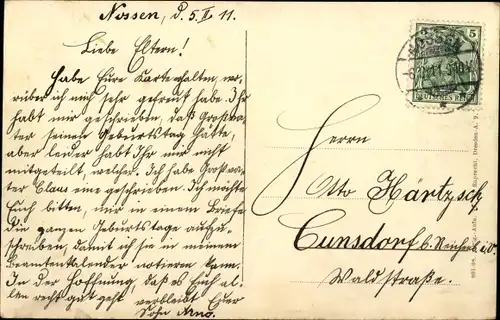 Nossen, d. 5. II 11.
Liebe Eltern!
Habe Eure Karte erhalten, wo-
rüber ich mich sehr gefreut habe. Ihr
habt mir geschrieben, daß Großva-
ter seinen Geburtstag hätte,
aber leider habt Ihr mir nicht
mitgeteilt, welcher. Ich habe Großva-
ter Claus eine geschrieben. Ich möchte
Euch bitten, mir in einem Briefe
die ganzen Geburtstage aufzu-
schreiben, damit ich sie in meinem
Beamtenkalender notieren kann.
In der Hoffnung, daß es Euch al-
len recht gut geht verbleibt Euer
Sohn Arno.
5 5
DEUTSCHES REICH
Herrn
Otto Härtzsch
Cunsdorf b. Reichenb. i. V.
Waldstraße.
Dresden-A. 9.